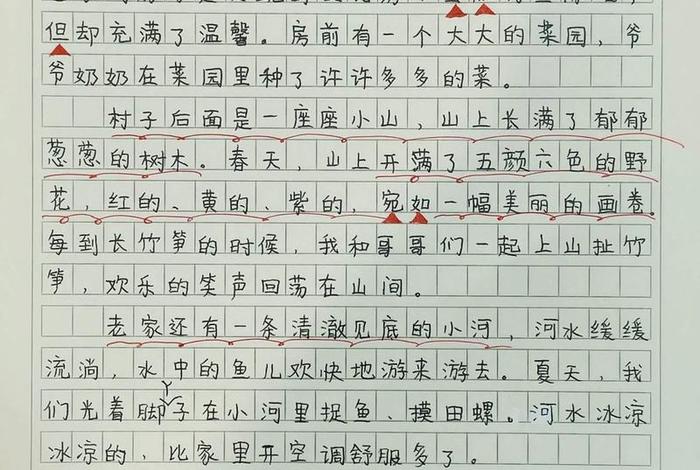 但却充满了温馨。房前有一个大大的菜园，爷
爷奶奶在菜园里种了许许多多的菜。
村子后面是一座座小山，山上长满了郁郁
葱葱的树木。春天，山上开满了五颜六色的野
花，红的、黄的、紫的，宛如一幅美丽的画卷。
每到长竹笋的时候，我和哥哥们一起上山扯竹
笋，欢乐的笑声回荡在山间。
老家还有一条清澈见底的小河，河水缓缓
流淌，水中的鱼儿欢快地游来游去。夏天，我
们光着脚丫子在小河里捉鱼、摸田螺。河水冰凉
冰凉的，比家里开空调舒服多了。